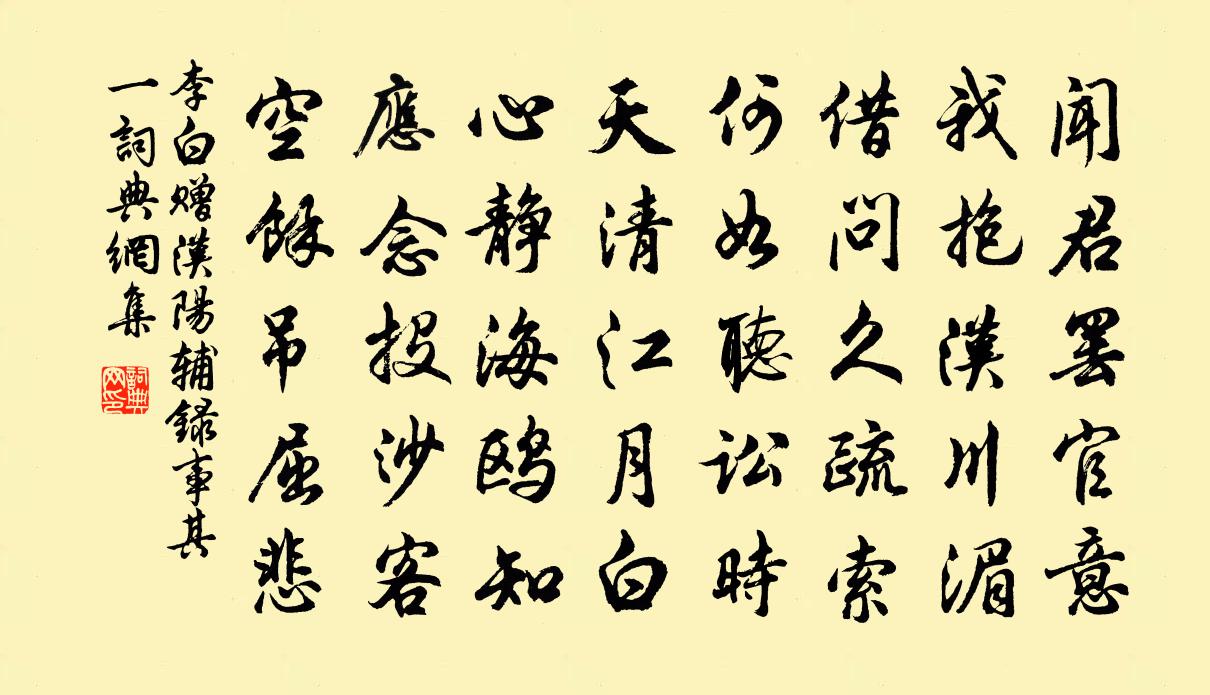 闻君罢官意
我抱漢川湄
借问久疏索
何如聽讼時
天清江月白
心静海鸥知
應念投沙客
空餘吊屈悲
李白赠漢陽辅録事其
一詞典網集
詞典
网印